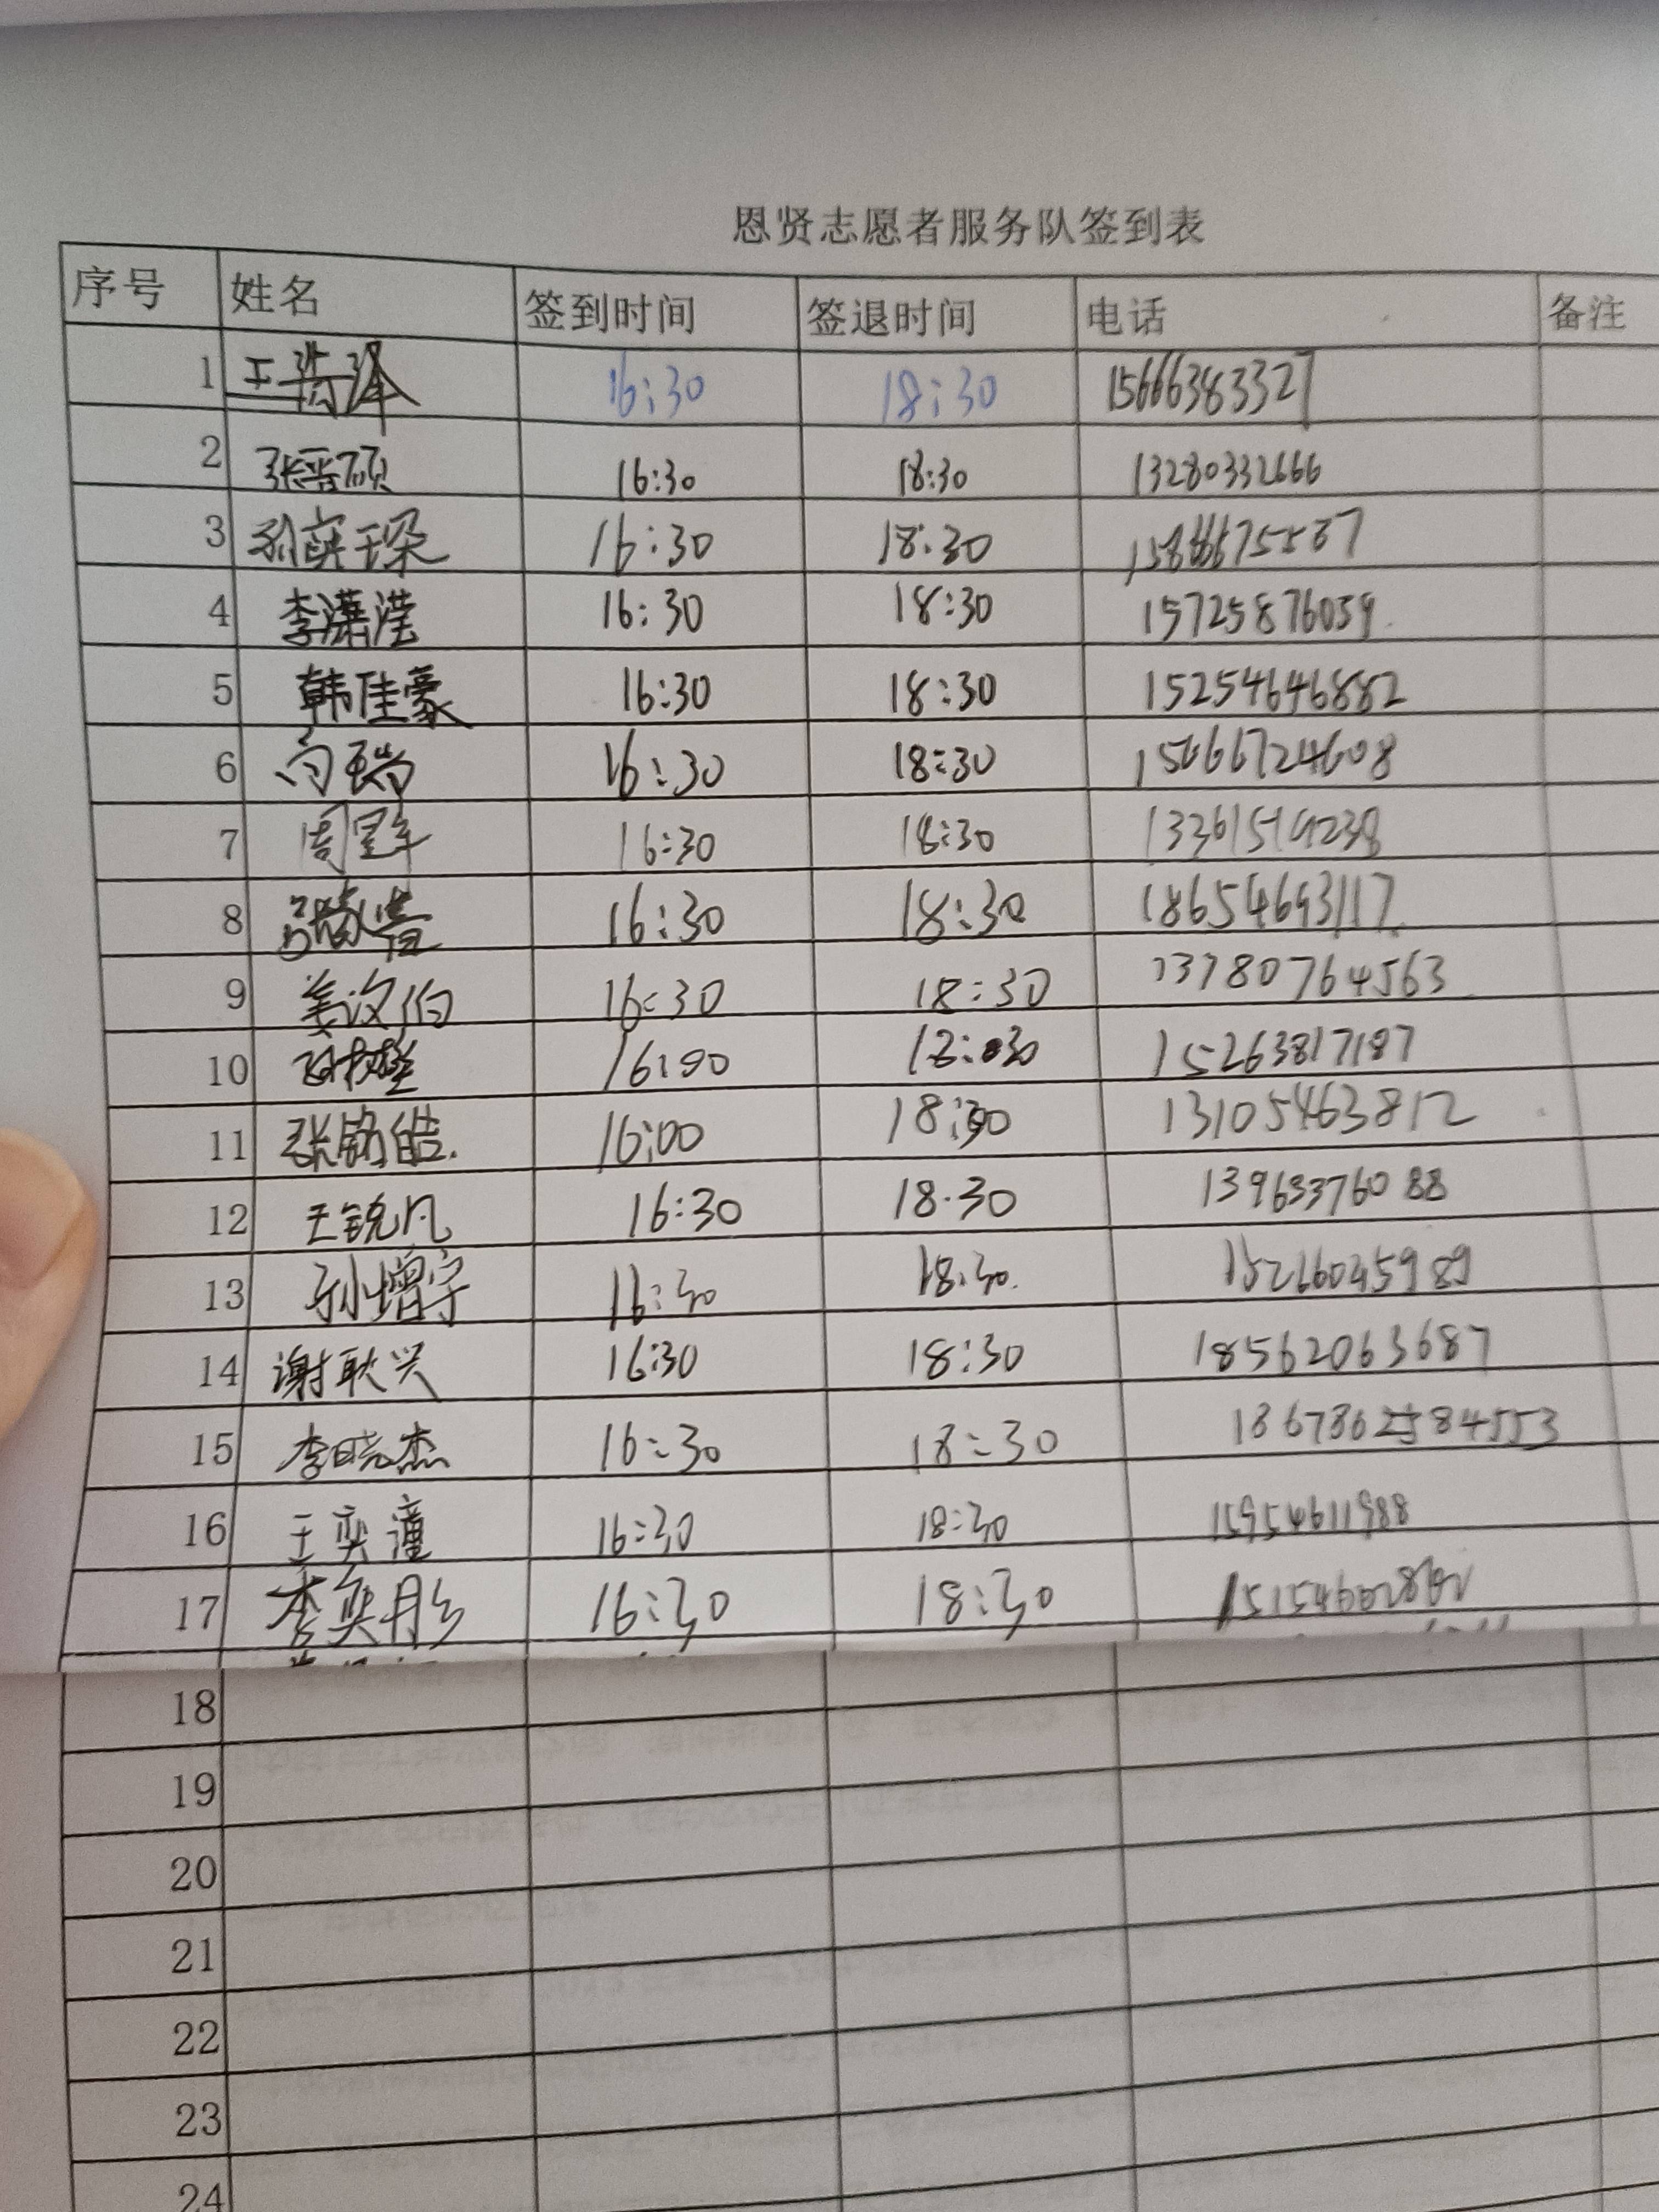 恩贤志愿者服务队签到表
序号 姓名 签到时间 签退时间 电话 备注
1 16:30 18:30 15666383327
2 张晋硕 16:30 18:30 13280332666
3 孙奕琛 16:30 18:30
4 李潇滢 16:30 18:30 15725876059
5 韩佳豪 16:30 18:30 15254646882
6 向瑞 16:30 18:30 15666724608
7 16:30 18:30 13361519238
8 16:30 18:30 18654693117
9 姜汶伯 16:30 18:30 13780764563
10 18:30 15263817187
11 张铭皓. 16:00 18:30 13105463812
12 王锐凡 16:30 18.30 13963376088
13 孙增宇 16:30 18.30. 15266045989
14 谢耿兴 16:30 18:30 18562063687
15 李晓杰 16:30 18:30
16 王奕潼 16:30 18:30 15954611988
17 李奕彤 16:30 18:30
18
19
20
21
22
23
24